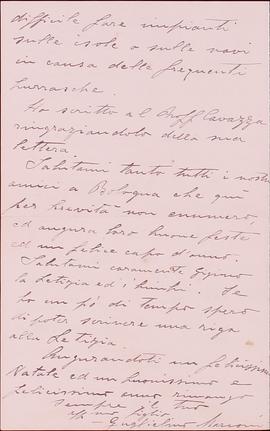 difficile fare impianti
sulle isole o sulle navi
in causa delle frequenti
burrasche.
Ho scritto al Proff Cavazza
ringraziandolo della sua
lettera.
Salutami tanto tutti i nostri
amici a Bologna che qui
per brevità non enumero,
ed augura loro buone feste
ed un felice capo d'anno.
Salutami caramente Ggino
la Letizia ed i bimbi. Se
ho un pò di tempo spero
di poter scrivere una riga
alla Letizia.
Augurandoti un felicissimo
Natale ed un buonissimo e
felicissimo anno rimango
sempre il tuo
aff mo figlio
Guglielmo Marconi